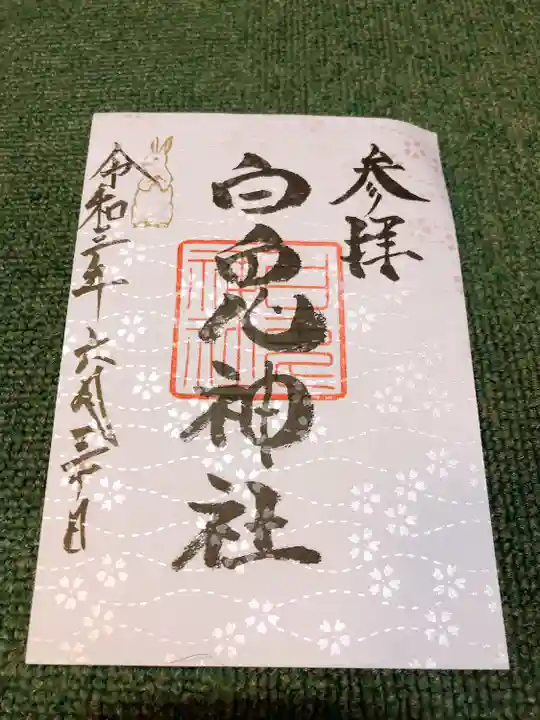 参拝
白兎神社
令和三年六月三十日